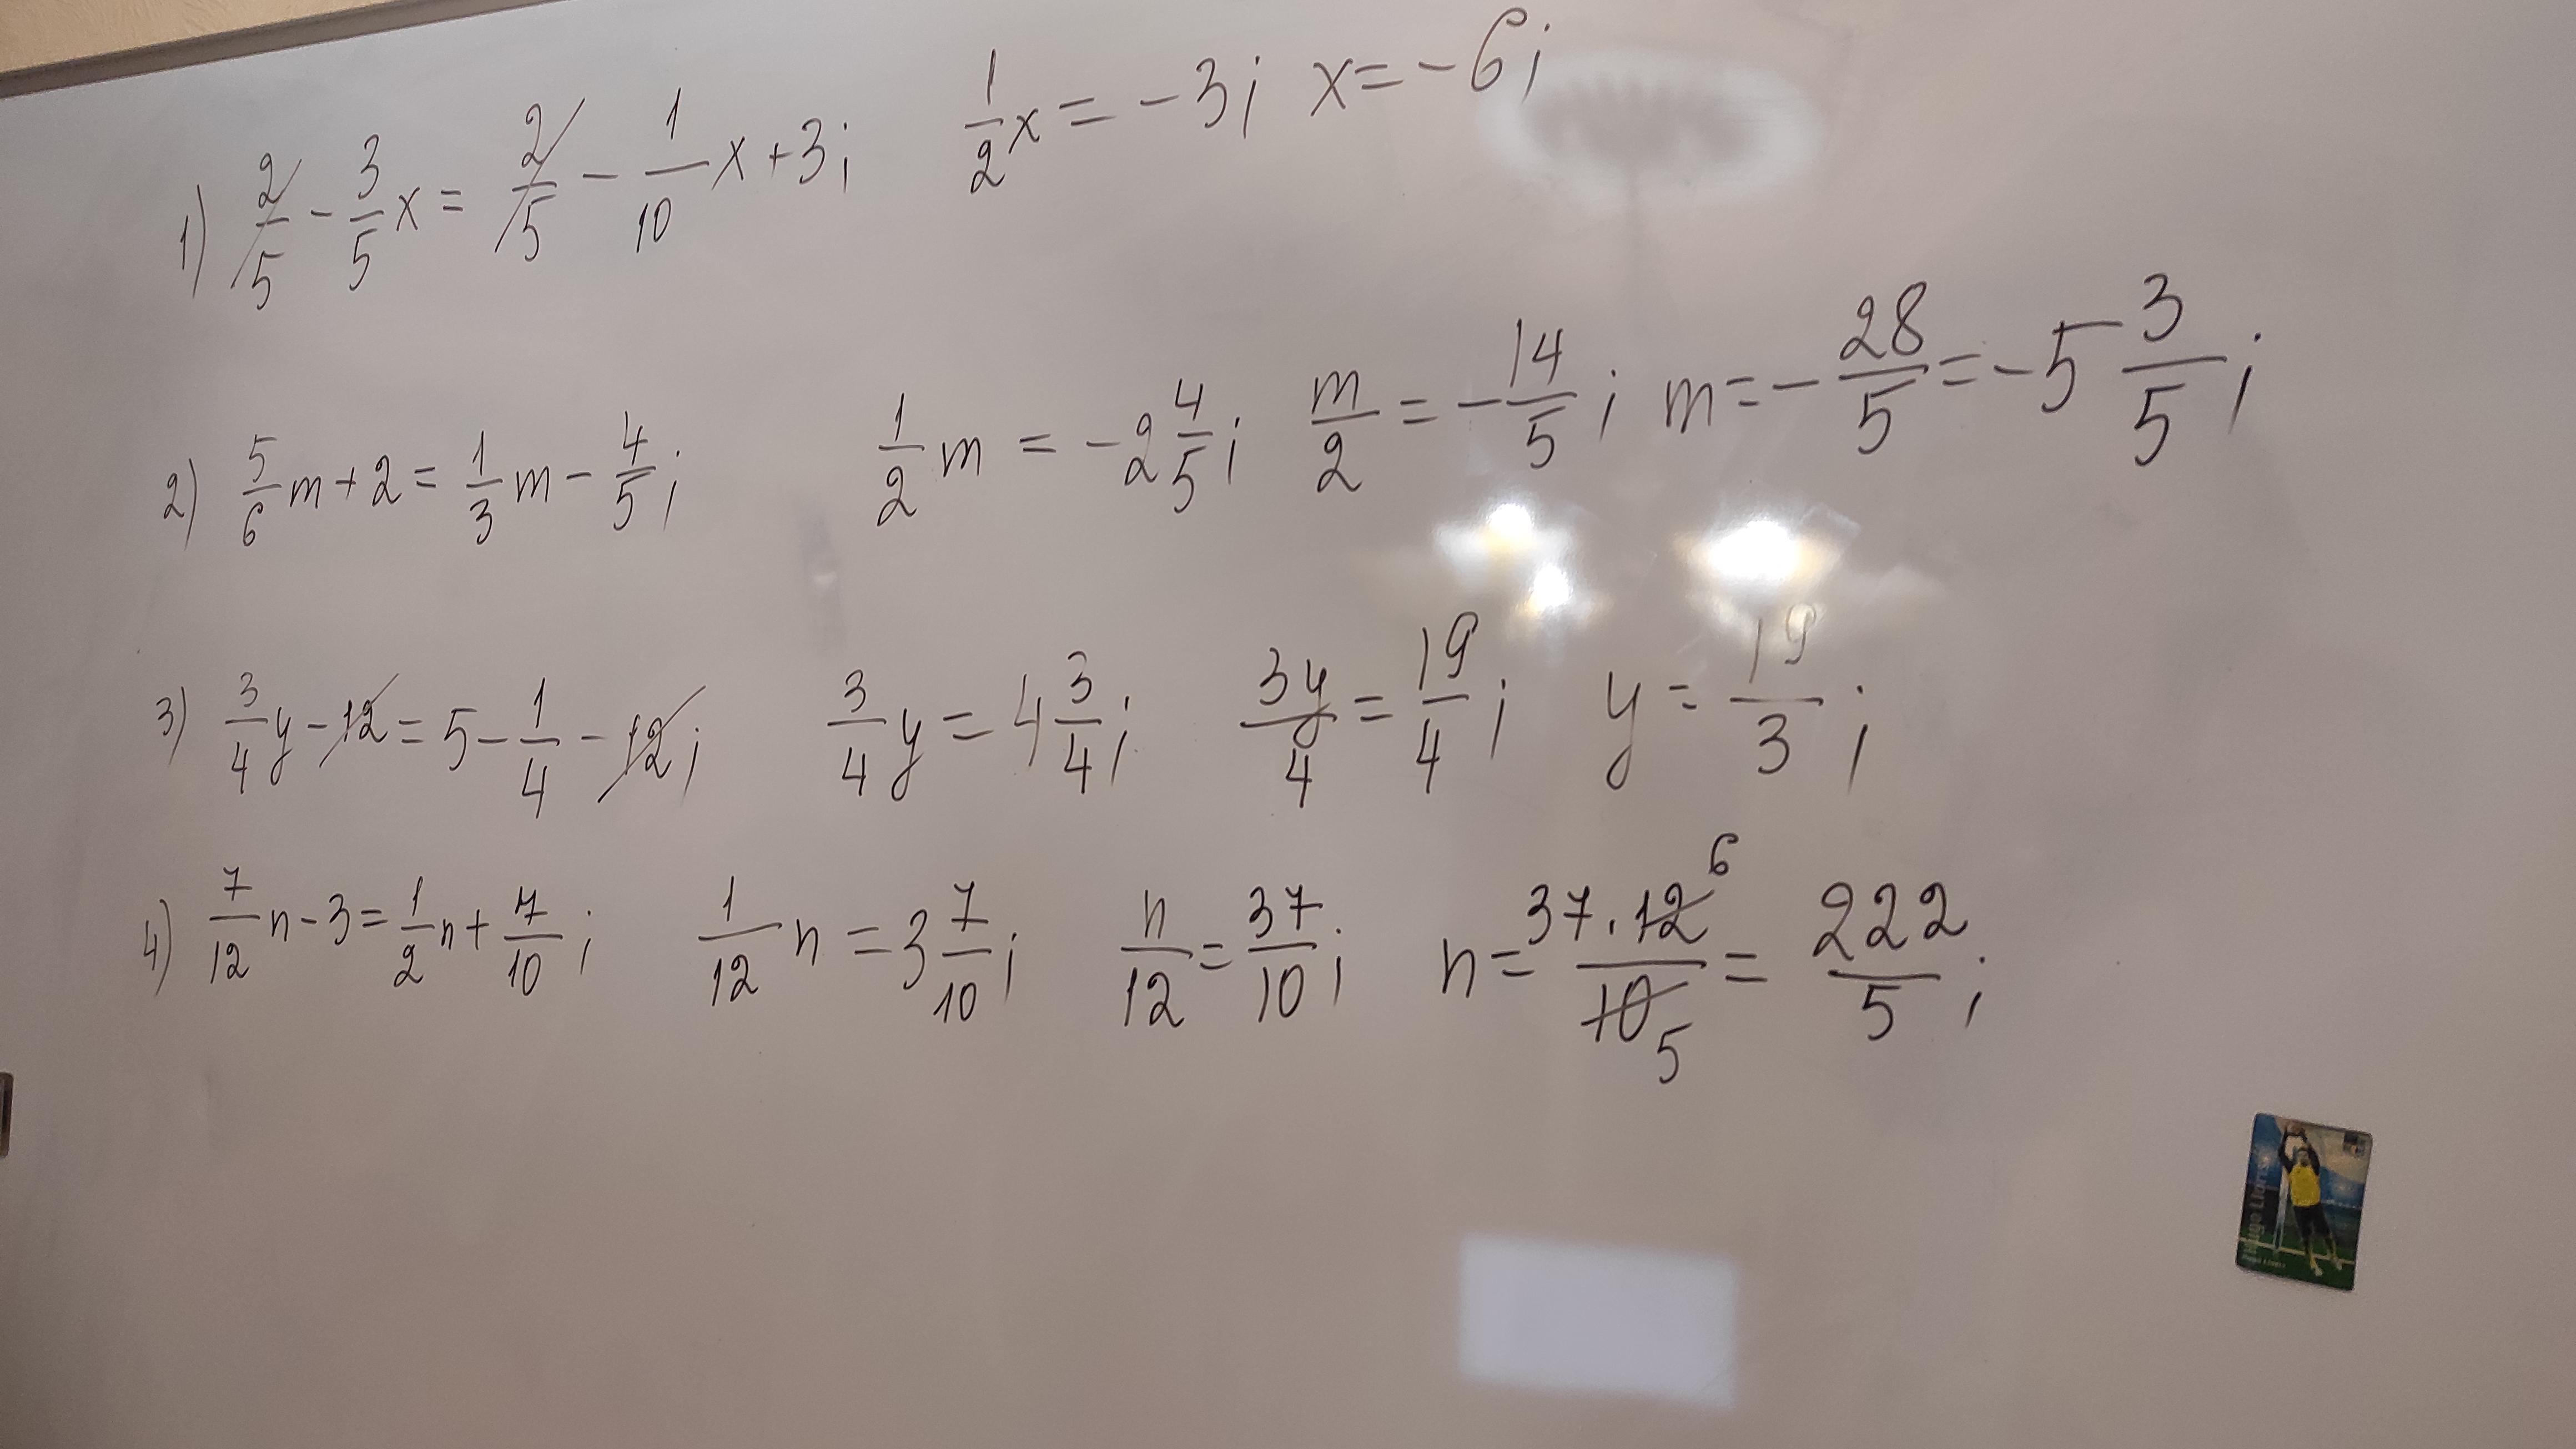 1) 2/5 - 3/5 x = 2/5 - 1/10 x + 3; 1/2 x = -3; x = -6;
2) 5/6 m + 2 = 1/3 m - 4/5; 1/2 m = -2 4/5; m/2 = -14/5; m = -28/5 = -5 3/5;
3) 3/4 y - 12 = 5 - 1/4 - 12; 3/4 y = 4 3/4; 3y/4 = 19/4; y = 19/3;
4) 7/12 n - 3 = 1/2 n + 7/10; 1/12 n = 3 7/10; n/12 = 37/10; n = 37 · 12 6 / 10 5 = 222/5;
Hugo Lloris